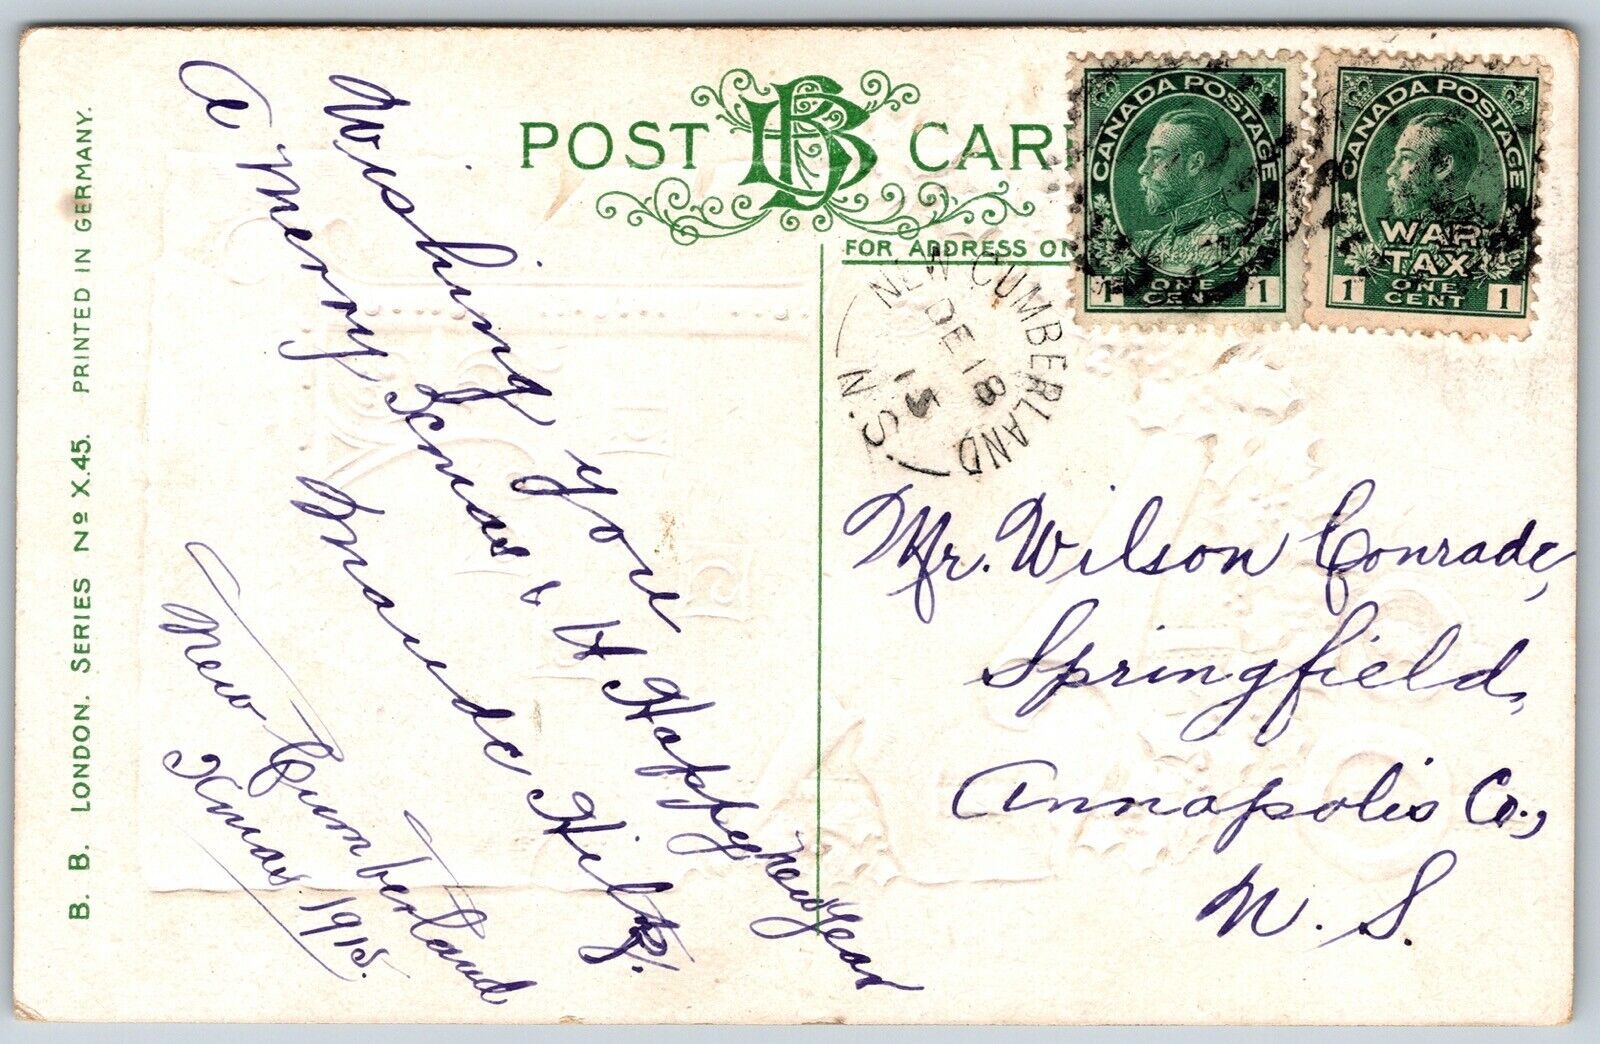 B. B. LONDON. SERIES No X.45. PRINTED IN GERMANY.
POST BB CAR
FOR ADDRESS ON
CANADA POSTAGE
1 ONE CENT 1
CANADA POSTAGE
WAR TAX
1 ONE CENT 1
NEW CUMBERLAND
DE 18
15
N.S.
Wishing you
A Merry Xmas & A Happy New Year
Maude
New Cumberland
Xmas 1915.
Mr. Wilson Conrade,
Springfield,
Annapolis Co.,
N. S.